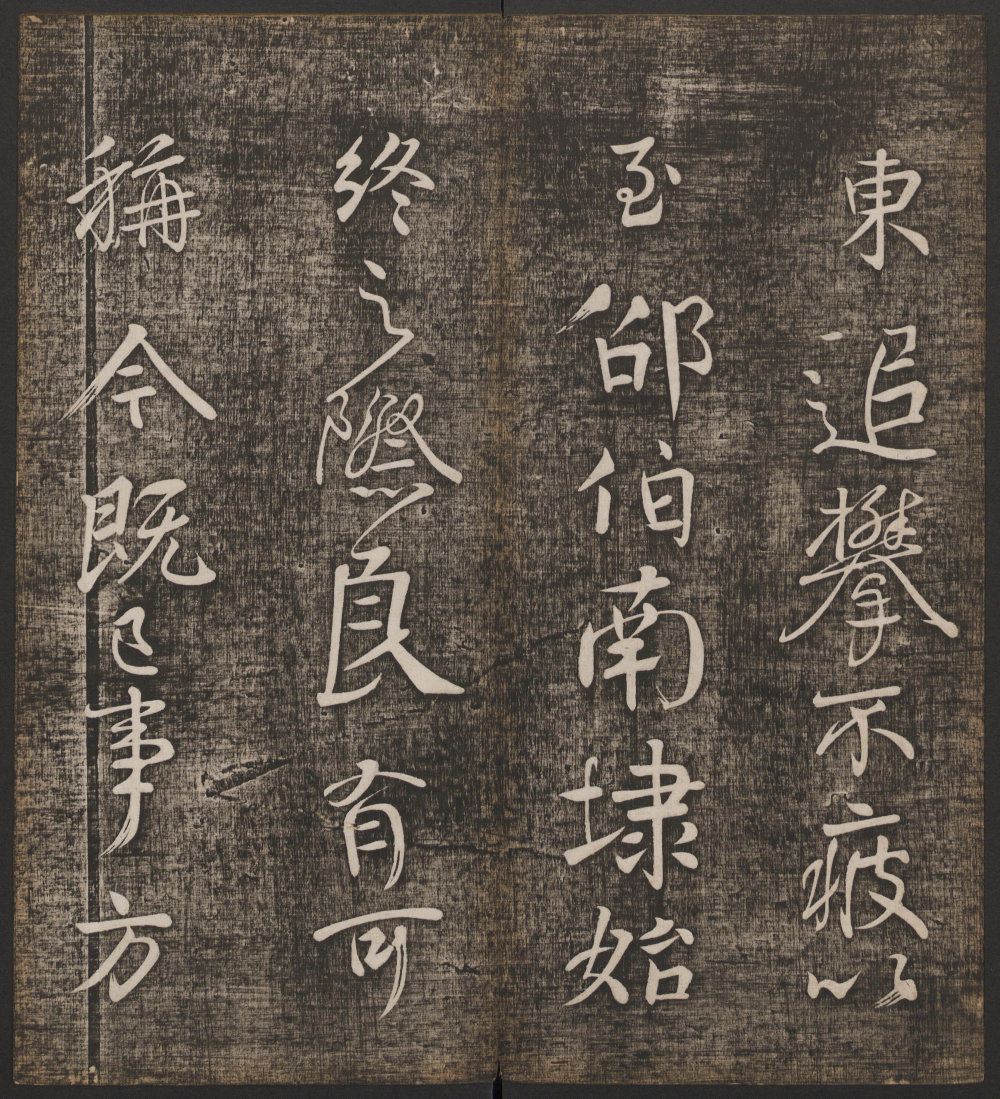 東追攀不疲以
至邵伯南埭始
終之際良有可
稱今既已事方